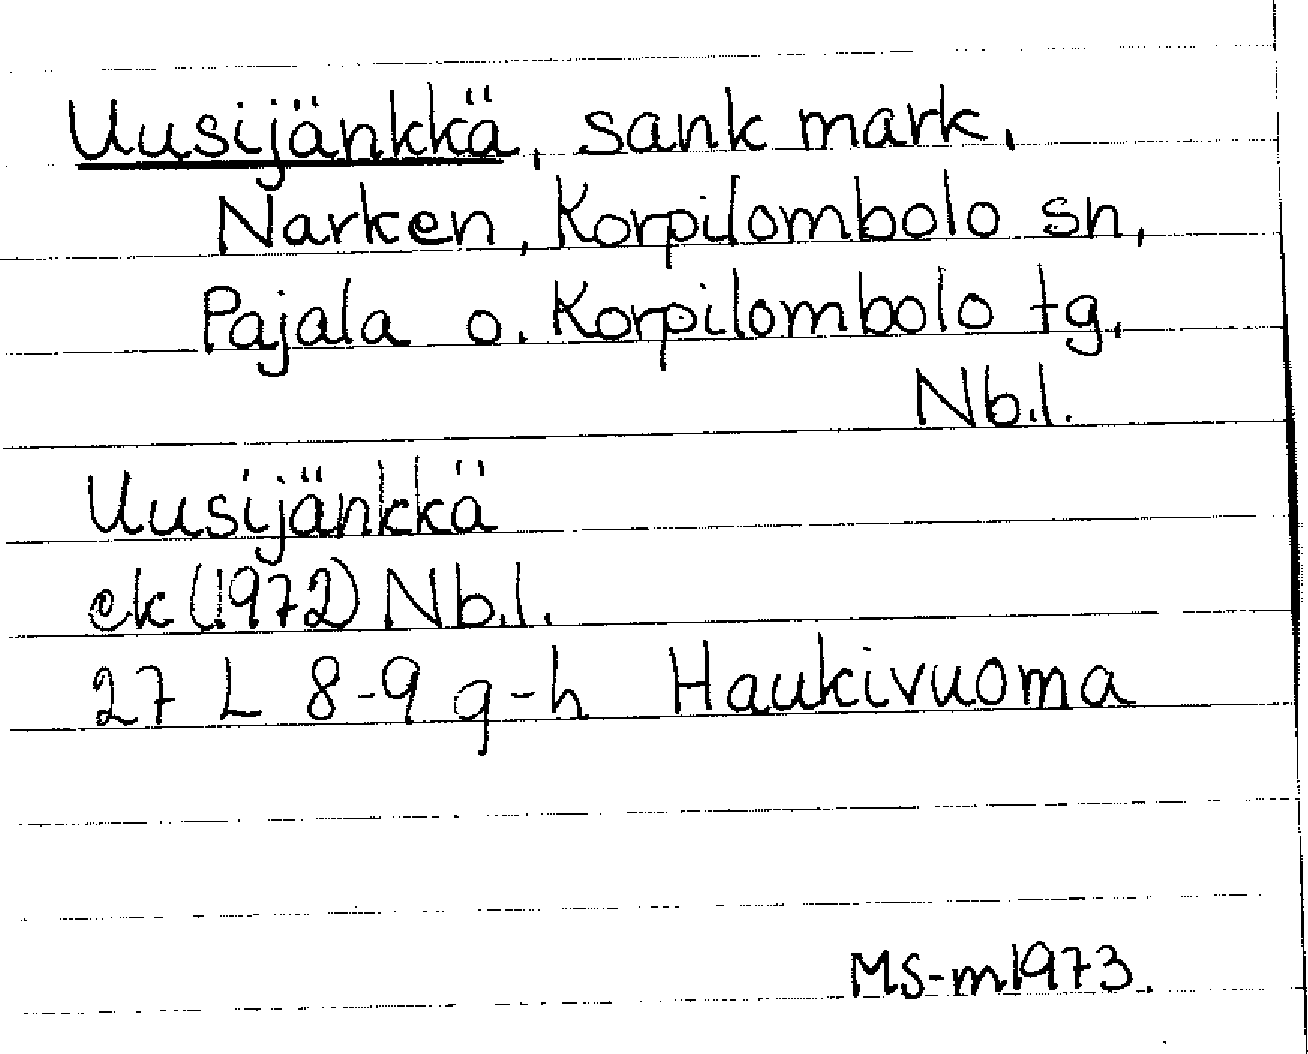 Uusijänkkä, sank mark,
Narken, Korpilombolo sn,
Pajala o. Korpilombolo tg,
Nb.l.
Uusijänkkä
ek (1972) Nb.l.
27 L 8-9 g-h Haukivuoma
MS-m1973.